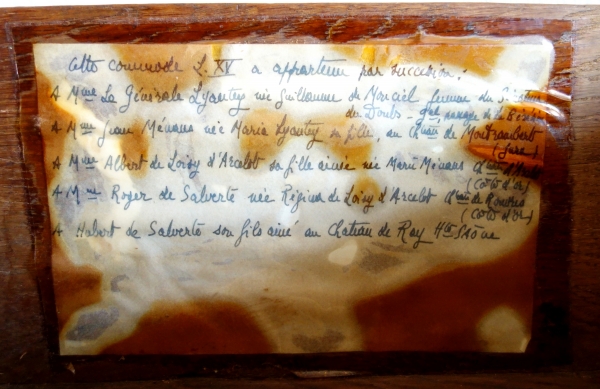 Cette commode L. XV a appartenu par succession :
A Mme La Générale Lyautey née Guillaume de Monciel femme du
du Doubs -
A Mme Jean Ménans née Marie Lyautey sa fille, au Chau de Montrambert
(Jura)
A Mme Albert de Loisy d'Arcelot sa fille ainée née Marie Ménans
(Cote d'Or)
A Mme Roger de Salverte née Régina de Loisy d'Arcelot
(Cote d'Or)
A Hubert de Salverte son fils ainé au Chateau de Ray Hte Saône